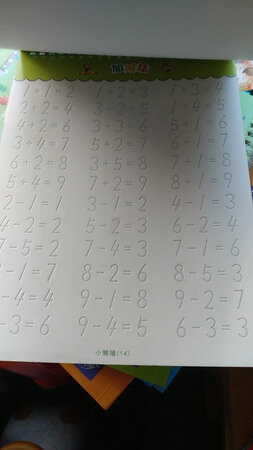 加减法
1+1=2 1+2=3 1+3=4
2+2=4 3+2=5 1+4=5
4+2=6 3+3=6 5+1=6
3+4=7 5+2=7 6+1=7
6+2=8 3+5=8 7+1=8
5+4=9 7+2=9 8+1=9
2-1=1 3-1=2 4-1=3
4-2=2 5-2=3 6-2=4
7-5=2 7-4=3 7-1=6
-1=7 8-2=6 8-5=3
-4=4 9-1=8 9-2=7
-3=6 9-4=5 6-3=3
小懒猪(14)